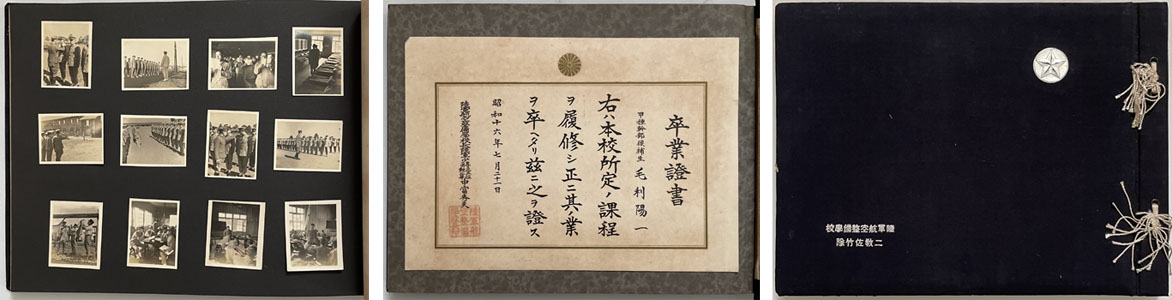 卒業證書
甲種幹部候補生 毛利陽一
右ハ本校所定ノ課程
ヲ履修シ正ニ其ノ業
ヲ卒ヘタリ茲ニ之ヲ證ス
昭和十六年七月二十一日
陸軍航空整備學校
二教佐竹隊